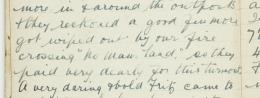 more in & around the outposts
& they reckoned a good few more
got wiped out by our fire
crossing "No Man's Land, so they
paid very dearly for this turnout.
A very daring & bold Fritz came to